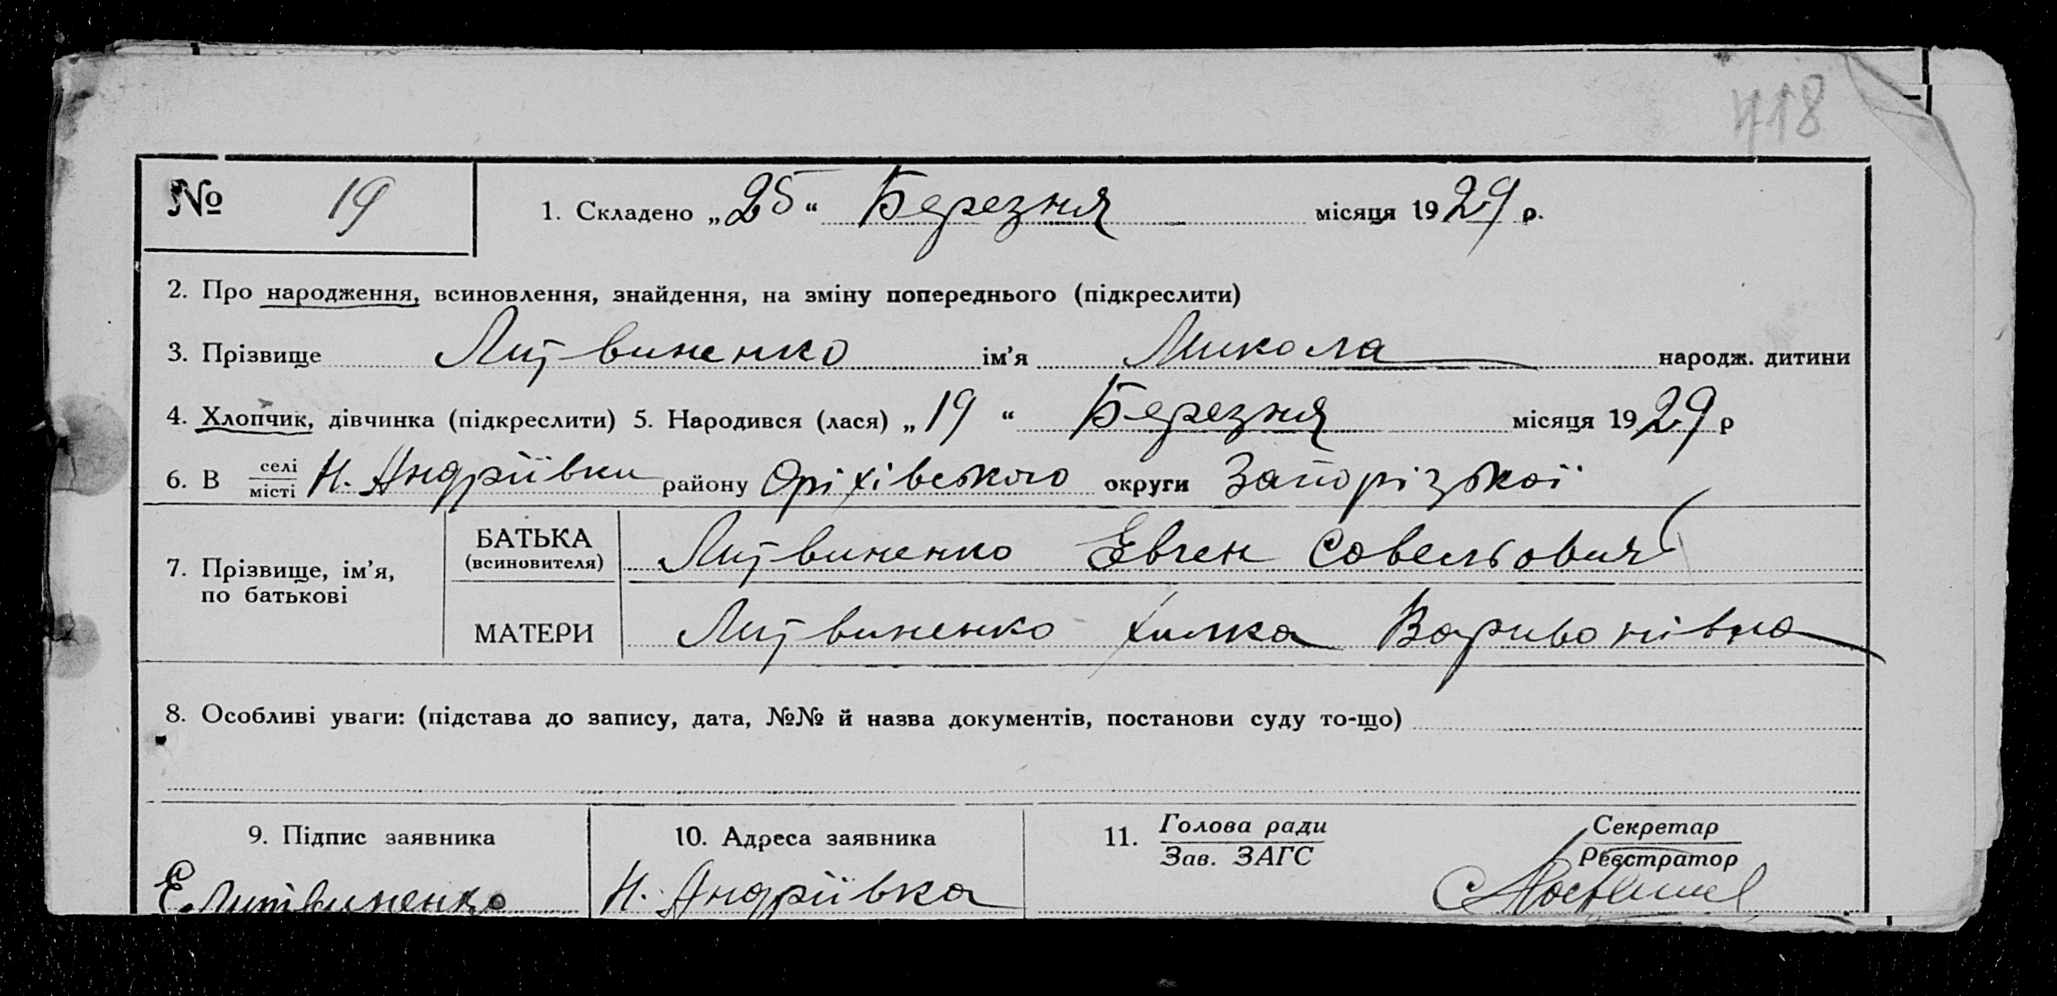 418
№ 19 1. Складено „25“ Березня місяця 1929 р.
2. Про народження, всиновлення, знайдення, на зміну попереднього (підкреслити)
3. Прізвище Литвиненко ім’я Микола народж. дитини
4. Хлопчик, дівчинка (підкреслити) 5. Народився (лася) „19“ Березня місяця 1929 р
6. В селі
місті Н. Андріївки району Оріхівського округи Запорізької
7. Прізвище, ім’я,
по батькові
БАТЬКА
(всиновителя)
Литвиненко Евген Савельович
МАТЕРИ Литвиненко Химка Варивонівна
8. Особливі уваги: (підстава до запису, дата, №№ й назва документів, постанови суду то-що)
9. Підпис заявника 10. Адреса заявника 11. Голова ради Секретар
Зав. ЗАГС Реєстратор
Е. Литвиненко Н. Андріївка